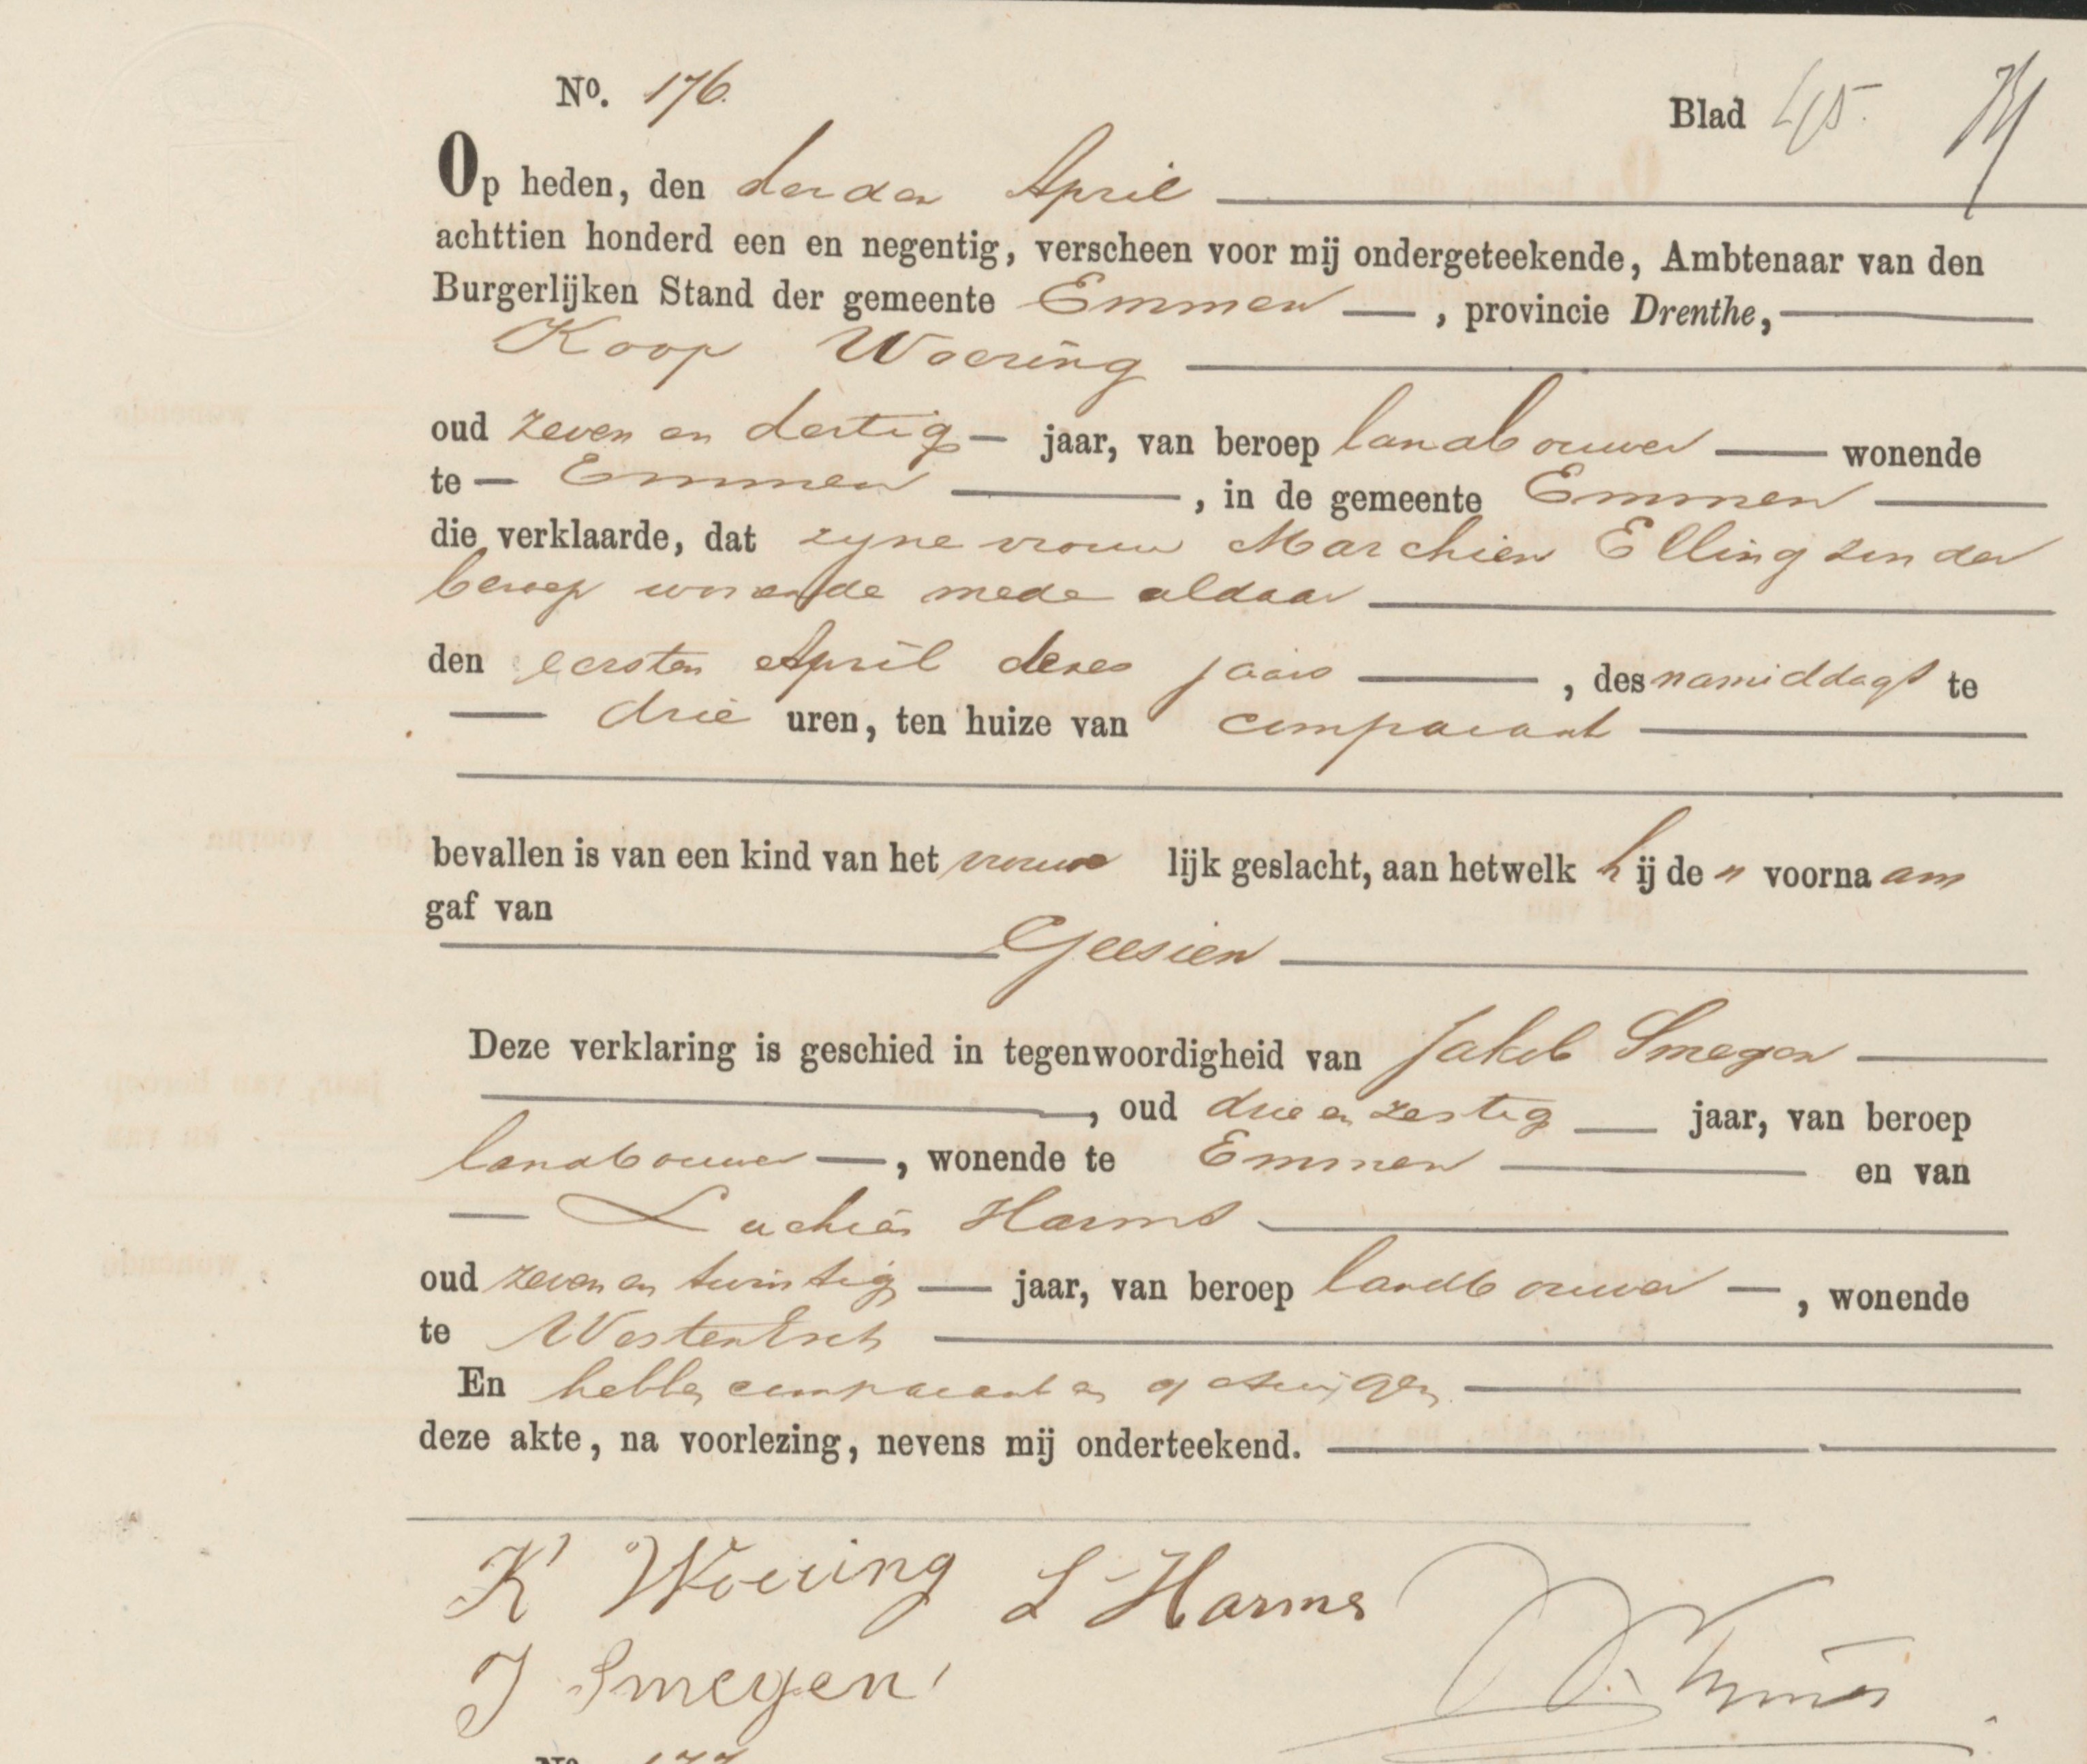 No. 176. Blad 45.
Op heden, den derden April
achttien honderd een en negentig, verscheen voor mij ondergeteekende, Ambtenaar van den
Burgerlijken Stand der gemeente Emmen, provincie Drenthe,
Koop Woering
oud zeven en dertig jaar, van beroep landbouwer wonende
te Emmen, in de gemeente Emmen
die verklaarde, dat zyne vrouw Marchien Elling zonder
beroep wonende mede aldaar
den eersten April dezes jaars, des namiddags te
drie uren, ten huize van comparant
bevallen is van een kind van het vrouwelijk geslacht, aan hetwelk hij den voornaam
gaf van
Geesien
Deze verklaring is geschied in tegenwoordigheid van Jakob Smegen
, oud drie en zestig jaar, van beroep
landbouwer, wonende te Emmen en van
Luchies Harms
oud zeven en twintig jaar, van beroep landbouwer, wonende
te Westenesch
En hebben comparant en getuigen
deze akte, na voorlezing, nevens mij onderteekend.
K Woering L Harms
J Smegen
No. 177